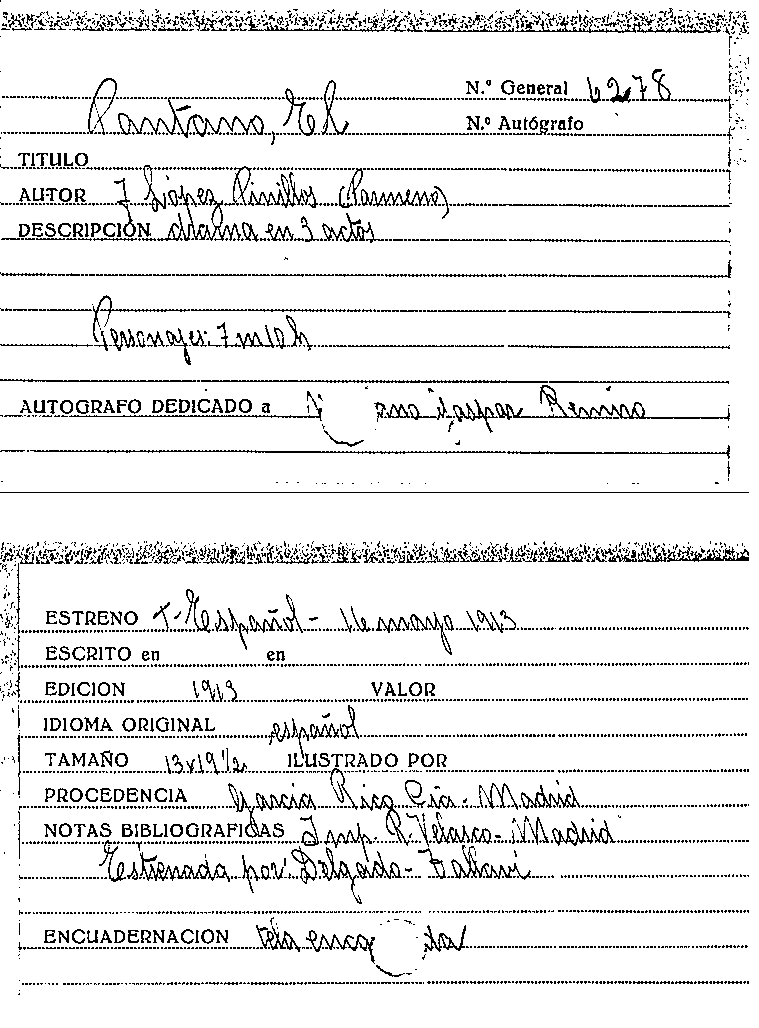 N.º General 6278
Pantano, El
N.º Autógrafo
TITULO
AUTOR J López Pinillos (Parmeno)
DESCRIPCIÓN drama en 3 actos
Personajes: 7 m 10 h
AUTOGRAFO DEDICADO a Gaspar Remiro
ESTRENO T. Español - 16 mayo 1913
ESCRITO en en
EDICION 1913 VALOR
IDIOMA ORIGINAL español
TAMAÑO 13x19 1/2 ILUSTRADO POR
PROCEDENCIA García Rico Cía - Madrid
NOTAS BIBLIOGRAFICAS Imp. R. Velasco - Madrid
Estrenada por: Delgado - Tallaví
ENCUADERNACION tela